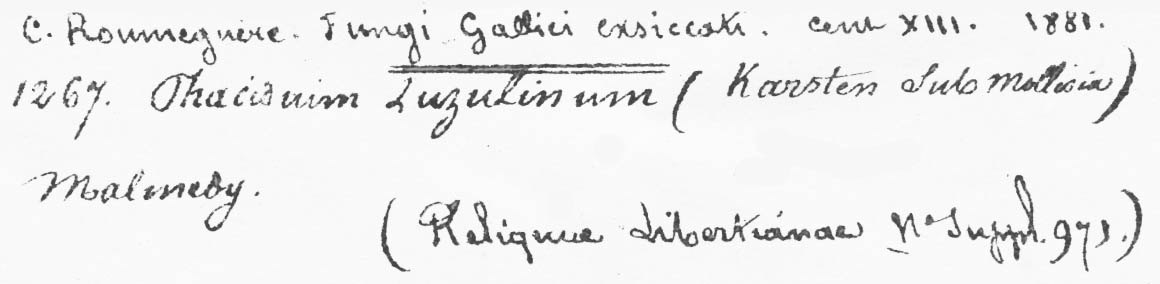 C. Roumeguère. Fungi Gallici exsiccati. cent XIII. 1881.
1267. Phacidium Luzulinum (Karsten Sub Mollisia)
Malmedy.
(Reliquiae Libertianae No Suppl. 971.)